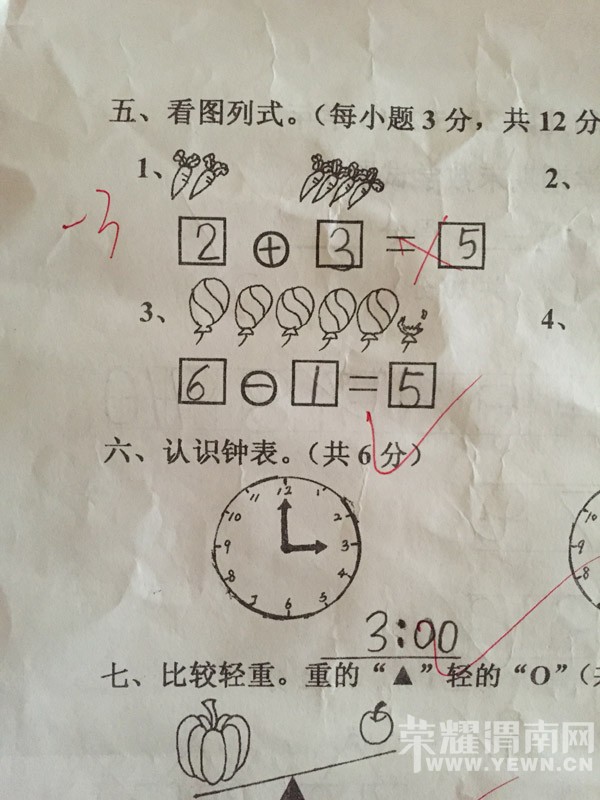 五、看图列式。(每小题3分，共12分
1、
2、
-3
2 + 3 = 5
3、
4、
6 - 1 = 5
六、认识钟表。(共6分)
11 12 1
10 2
9 3
8 4
7 6 5
10
9
8
3:00
七、比较轻重。重的“▲”轻的“O”(共
荣耀渭南网
WWW.YEWN.CN